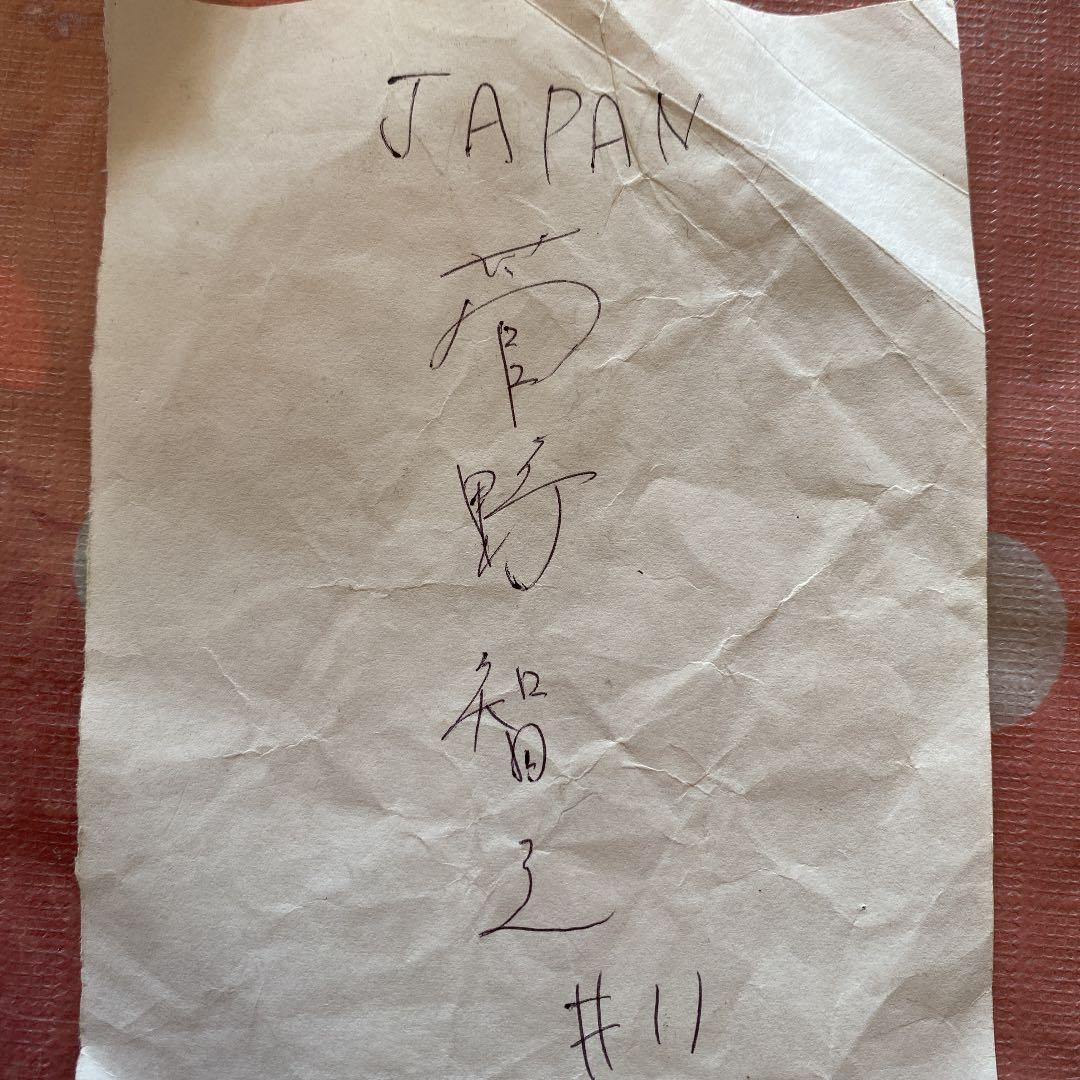 JAPAN
菅野智之
#11